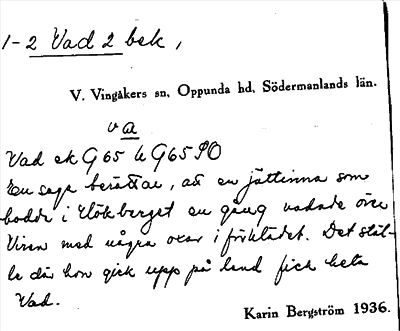 1-2 Vad 2 bek,
V. Vingåkers sn, Oppunda hd, Södermanlands län.
va
Vad ek G65 le G65 SO
En saga berättar, att en jättinna som
bodde i Hökberget en gång vadade över
Viren med några oxar i förklädet. Det stäl-
le där hon gick upp på land fick heta
Vad.
Karin Bergström 1936.